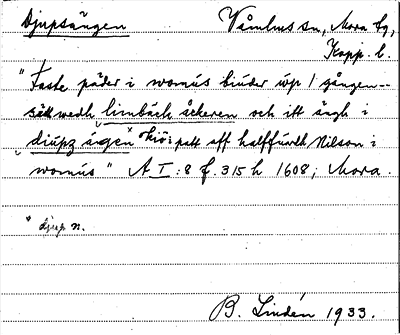 Djupsängen Våmhus sn, Mora tg,
Kopp. l.
"Faste päder i womús biúder úp 1 gången--
sätt wedh limbäck åckeren och itt ängh i
diúpz ägen* Kiöpatt aff halffúwdh Nilson i
womús" A I:8 f. 315 h 1608; Mora.
* djup n.
B. Lindén 1933.